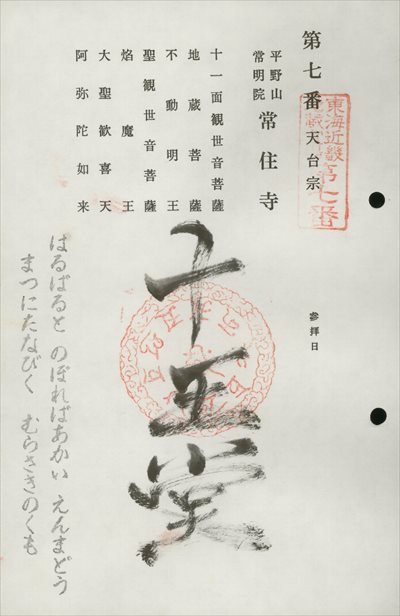 第七番 天台宗
平野山
常明院
常住寺
十一面観世音菩薩
地蔵菩薩
不動明王
聖観世音菩薩
焔魔王
大聖歓喜天
阿弥陀如来
東海近畿
第七番
参拝日
十王堂
はるばると のぼればあかい えんまどう
まつにたなびく むらさきのくも